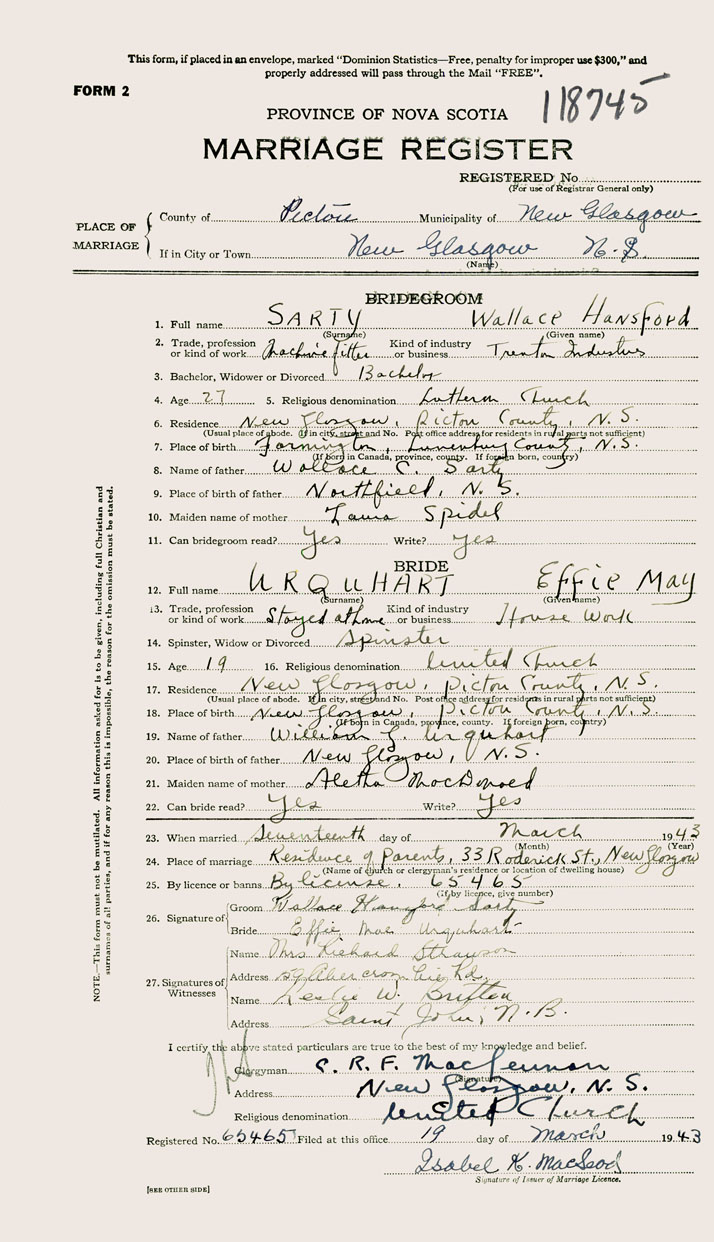 This form, if placed in an envelope, marked "Dominion Statistics—Free, penalty for improper use $300," and
properly addressed will pass through the Mail "FREE".
FORM 2
118745
PROVINCE OF NOVA SCOTIA
MARRIAGE REGISTER
REGISTERED No.
(For use of Registrar General only)
PLACE OF MARRIAGE
County of Pictou Municipality of New Glasgow
If in City or Town New Glasgow N.S.
(Name)
BRIDEGROOM
1. Full name SARTY Wallace Hansford
(Surname) (Given name)
2. Trade, profession or kind of work Machine fitter Kind of industry or business Trenton Industries
3. Bachelor, Widower or Divorced Bachelor
4. Age 27 5. Religious denomination Lutheran Church
6. Residence New Glasgow, Pictou County, N.S.
(Usual place of abode. If in city, street and No. Post office address for residents in rural parts not sufficient)
7. Place of birth Farmington, Lunenburg County, N.S.
(If born in Canada, province, county. If foreign born, country)
8. Name of father Wallace C. Sarty
9. Place of birth of father Northfield, N.S.
10. Maiden name of mother Laura Spidel
11. Can bridegroom read? Yes Write? Yes
BRIDE
12. Full name URQUHART Effie May
(Surname) (Given name)
13. Trade, profession or kind of work Stayed at home Kind of industry or business House Work
14. Spinster, Widow or Divorced Spinster
15. Age 19 16. Religious denomination United Church
17. Residence New Glasgow, Pictou County, N.S.
(Usual place of abode. If in city, street and No. Post office address for residents in rural parts not sufficient)
18. Place of birth New Glasgow, Pictou County, N.S.
(If born in Canada, province, county. If foreign born, country)
19. Name of father William Urquhart
20. Place of birth of father New Glasgow, N.S.
21. Maiden name of mother Aletha MacDonald
22. Can bride read? Yes Write? Yes
23. When married Seventeenth day of March 1943
(Month) (Year)
24. Place of marriage Residence of Parents, 33 Roderick St., New Glasgow
(Name of church or clergyman's residence or location of dwelling house)
25. By licence or banns By license. 65465
(If by licence, give number)
26. Signature of
Groom Wallace Hansford Sarty
Bride Effie Mae Urquhart
27. Signatures of Witnesses
Name Mrs Richard
Address Abercrombie Rd.
Name Leslie W. Britten
Address Saint John, N.B.
I certify the above stated particulars are true to the best of my knowledge and belief.
Clergyman C. R. F. MacLennan
(Signature)
Address New Glasgow, N.S.
Religious denomination United Church
Registered No. 65465 Filed at this office 19 day of March 1943
Isabel K. MacLeod
Signature of Issuer of Marriage Licence.
[SEE OTHER SIDE]
NOTE.—This form must not be mutilated. All information asked for is to be given, including full Christian and
surnames of all parties, and if for any reason this is impossible, the reason for the omission must be stated.